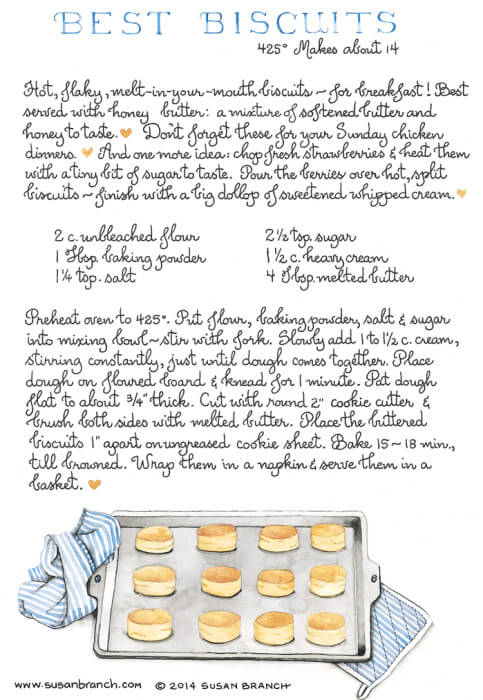 BEST BISCUITS
425° Makes about 14
Hot, flaky, melt-in-your-mouth biscuits ~ for breakfast! Best
served with honey butter: a mixture of softened butter and
honey to taste. 🧡 Don't forget these for your Sunday chicken
dinners. 🧡 And one more idea: chop fresh strawberries & heat them
with a tiny bit of sugar to taste. Pour the berries over hot, split
biscuits ~ finish with a big dollop of sweetened whipped cream. 🧡
2 c. unbleached flour
1 Tbsp. baking powder
1¼ tsp. salt
2½ tsp. sugar
1½ c. heavy cream
4 Tbsp. melted butter
Preheat oven to 425°. Put flour, baking powder, salt & sugar
into mixing bowl ~ stir with fork. Slowly add 1 to 1½ c. cream,
stirring constantly, just until dough comes together. Place
dough on floured board & knead for 1 minute. Pat dough
flat to about ¾" thick. Cut with round 2" cookie cutter &
brush both sides with melted butter. Place the buttered
biscuits 1" apart on ungreased cookie sheet. Bake 15~18 min.,
till browned. Wrap them in a napkin & serve them in a
basket. 🧡
www.susanbranch.com © 2014 SUSAN BRANCH